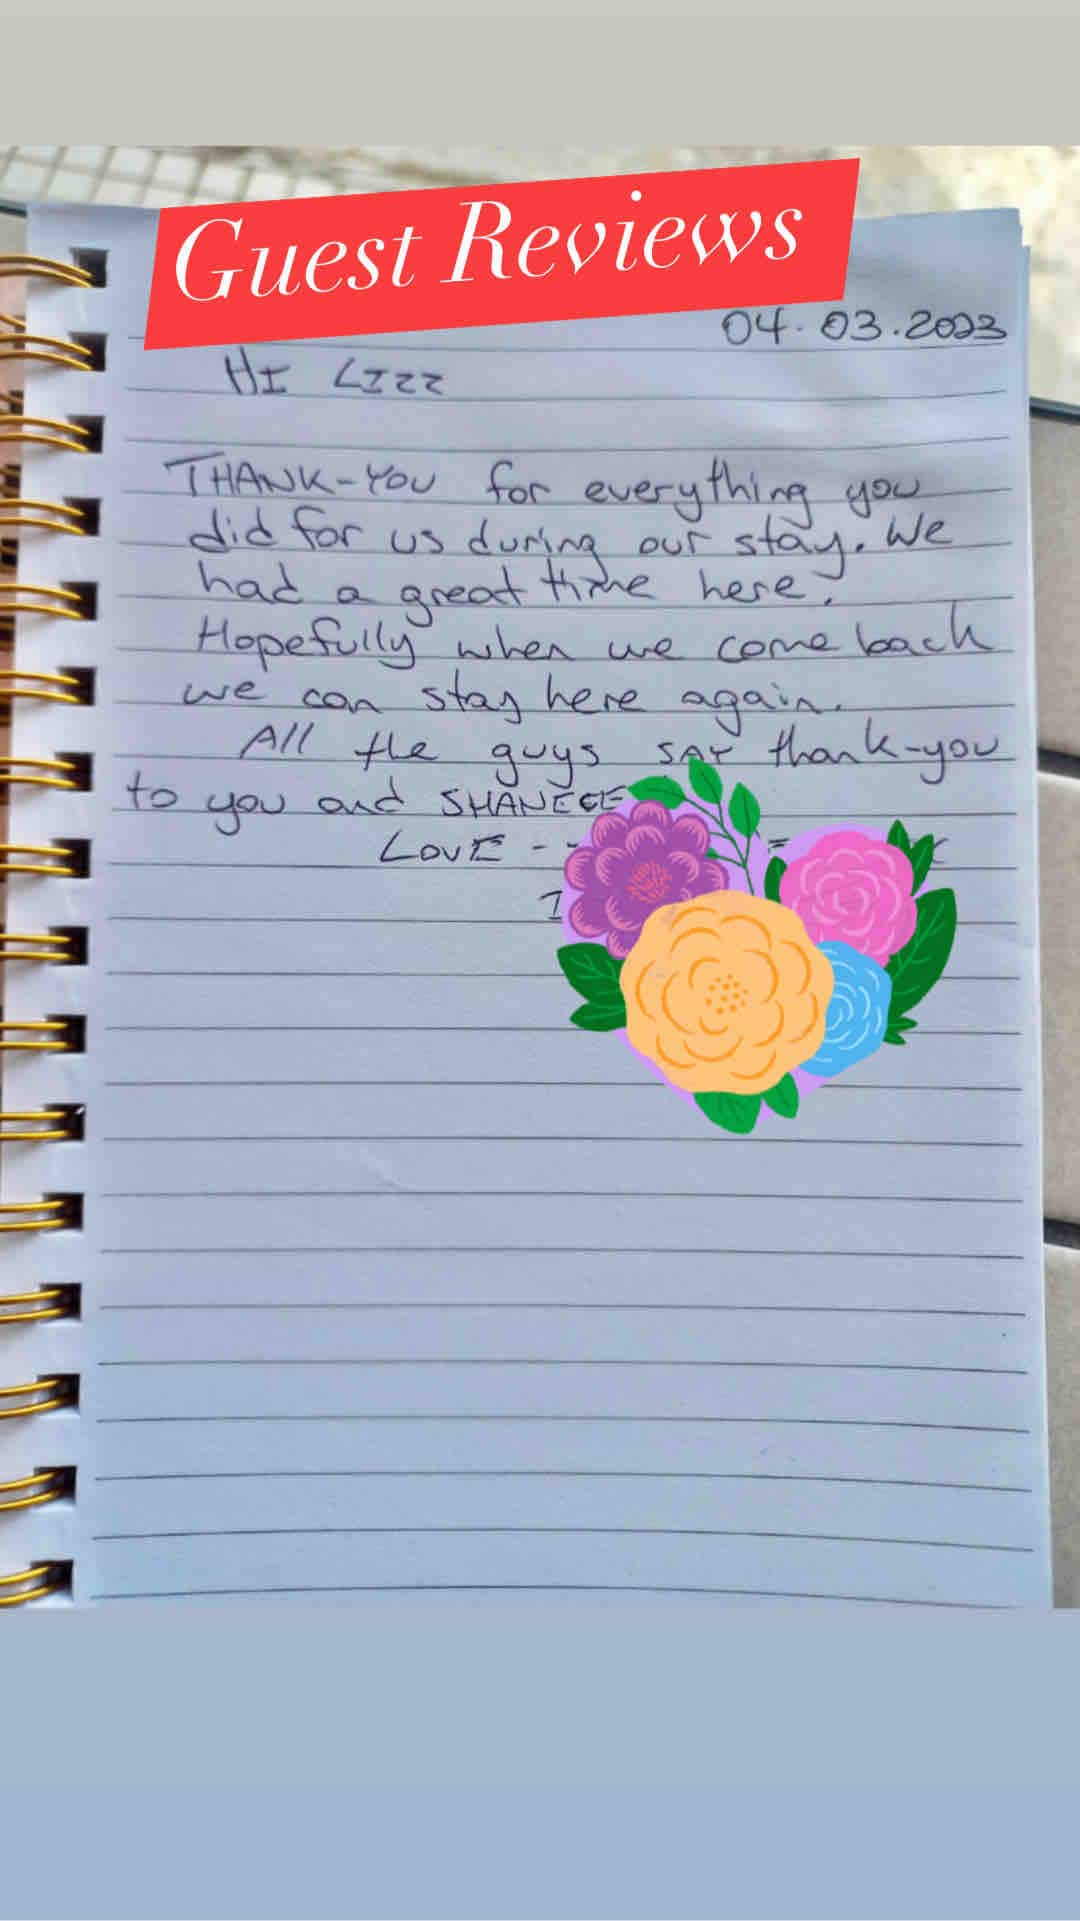 Guest Reviews
04.03.2023
HI LIZZ
THANK-YOU for everything you
did for us during our stay. We
had a great time here.
Hopefully when we come back
we can stay here again.
All the guys SAY thank-you
to you and SHANECE
LOVE